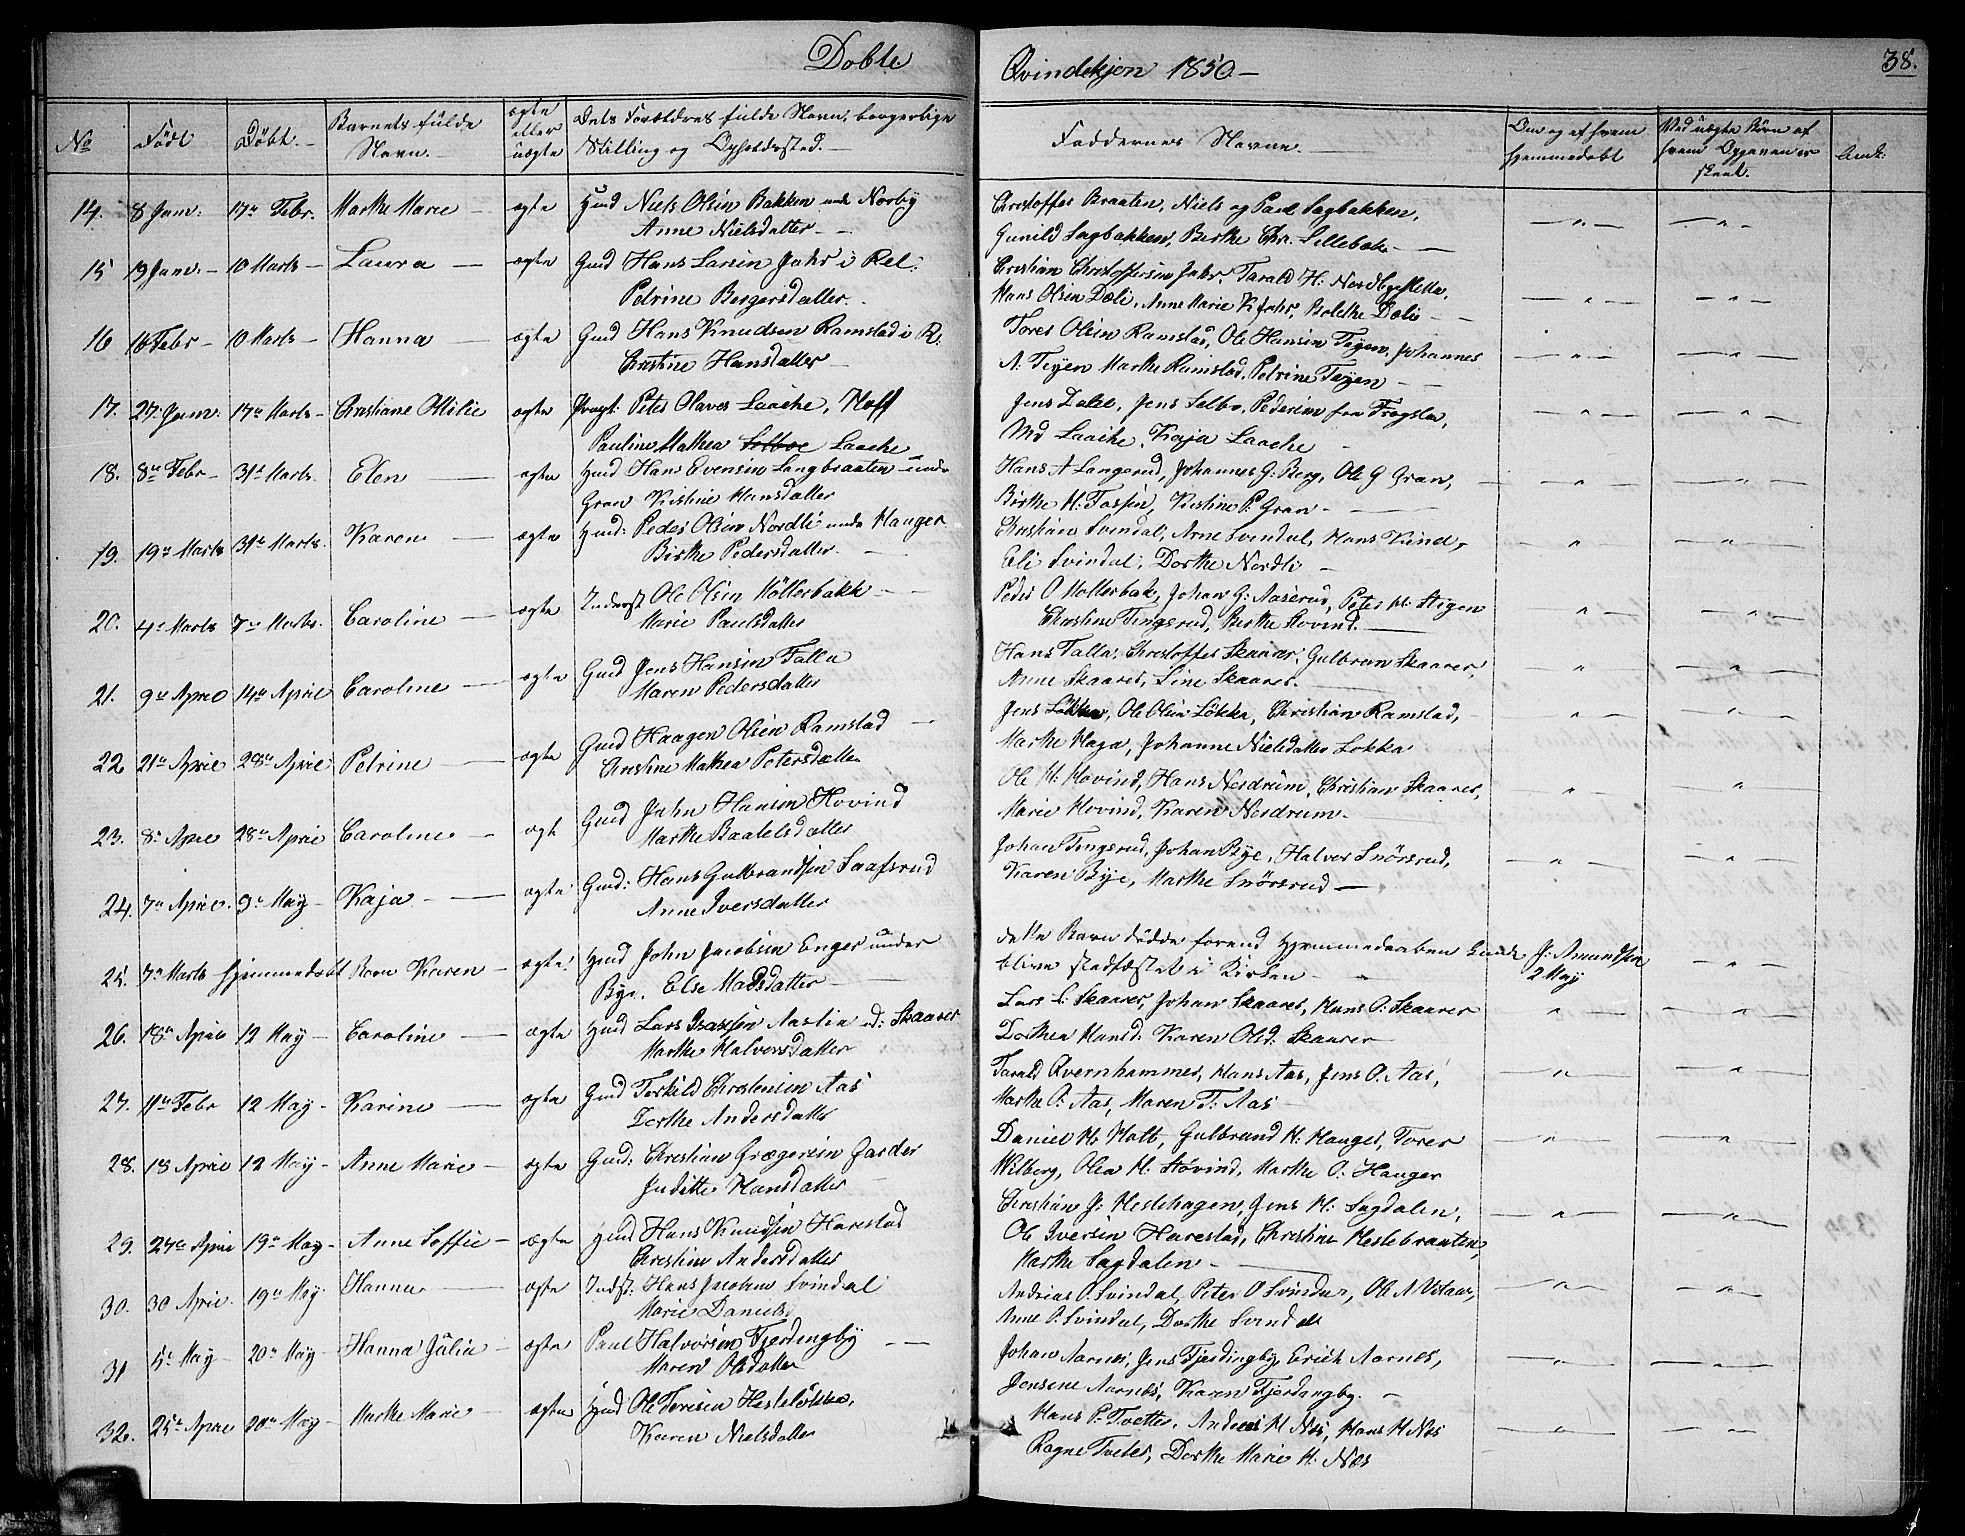 Døbte
Qvindekjøn 1850.-
38.
No
Født
Døbt.-
Barnets fulde Navn.-
ægte eller uægte
Dets Forældres fulde Navn, borgerlige Stilling og Opholdssted.-
Faddernes Navne.
Om og af hvem hjemmedøbt
Ved uægte Børn af hvem Opgaven er skeet.
Anm:
14. 8 Janr: 17de Febr. Marthe Marie - ægte Hmd Niels Olsen Bakken under Norby
Anne Nielsdatter -
Christoffer Braaten, Niels og Paul Sagbakken,
Gunild Sagbakken, Birthe Chr. Lillebæk -
15 19 Janr. - 10 Marts - Laura - ægte Gmd Hans Larsen Jahr i Rel:
Petrine Bergersdatter.
Christian Christoffersen Jahr, Tarald H: Nordbysletta,
Hans Olsen Dæli, Anne Marie K Jahr, Bolethe Dæli -
16 16 Febr - 10 Marts - Hanna - ægte Gmd Hans Knudsen Ramstad i R.
Christine Hansdatter -
Tores Olsen Ramstad, Ole Hansen Tejen, Johannes
A. Tejen Marthe Ramstad, Petrine Tejen -
17. 27. Janr: 17de Marts - Christiane Ottilie ægte Peter Olaves Laache, Hoff
Pauline Mathea Selboe Laache
Jens Dahl, Jens Selbo, Pedersen fra Frogstea,
Md Laache, Kaja Laache -
18. 8de Febr - 31te Marts. Elen - ægte Hmd Hans Evensen Langbraaten under
Gran Kistine Hansdatter
Hans A Langerud, Johannes G: Berg, Ole G Gran,
Birthe H: Fossen, Kistine P: Gran -
19. 19de Marts 31te Marts. Karen - ægte Hmd: Peder Olsen Nordli under Hauger
Birthe Pedersdatter. -
Christian Svindal, Arne Svindal, Hans Kind,
Eli Svindal, Dorthe Nordli -
20. 4de Marts 7de Marts. Caroline - ægte Inderst Ole Olsen Möllerbakk -
Marie Paulsdatter
Peder O Mollerbak, Johan G: Aaserud, Peter H: Stigen
Christine Tingsrud, Berthe Hovind. -
21. 9de April 14de April Caroline - ægte Gmd Jens Hansen Falla
Maren Pedersdatter
Hans Falla, Christoffer Skaarer, Gulbran Skaarer,
Anne Skaarer, Line Skaarer.
22 21de April 28de April Petrine - ægte Gmd Haagen Olsen Ramstad -
Christine Mathea Petersdatter
Jens Løkka, Ole Olsen Løkka, Christian Ramstad,
Marthe Haga, Johanne Nielsdatter Løkka
23. 8de April 28de April Caroline - ægt Gmd Jahn Hansen Hovind
Marthe Baaletsdatter
Ole H: Hovind, Hans Nerdrum, Christian Skaarer,
Marie Hovind, Karen Nerdrum -
24. 7de April. 9de May - Kaja - ægte Gmd: Hans Gulbrandsen Saafsrud
Anne Iversdatter
Johan Tingsrud, Johan Bye, Halvor Snörsrud,
Karen Bye, Marthe Snörsrud -
25. 7de Marts hjemmedøbt Barn Karen - ægte Hmd John Jacobsen Enger under
Bye, Else Madsdatter -
dette Barn døde forend Hjemmedaaben kunde
blive stadfæstet i Kirken -
J: Amundsen
2 May
26. 18de April 12 May - Caroline - ægte Hmd Lars Isaksen Aastin ud: Skaarer
Marthe Halvorsdatter
Lars L: Skaarer, Johan Skaarer, Hans P: Skaarer
Dorthea Hansd: Karen Olsd: Skaarer
27. 11de Febr 12 May - Karine - ægte Gmd Terkild Christensen Aas
Dorthe Andersdatter
Tarald Qvernhammer, Hans Aas, Jens O. Aas,
Marthe P: Aas, Maren T: Aas
28. 18 April 12 May - Anne Marie - ægte Gmd: Christian Grægersen Garder
Juditte Hansdatter -
Daniel H: Holt, Gulbrand H: Hauger, Torer
Wilberg, Olea H. Hovind, Marthe O: Hauger
29. 27de April 19de May - Anne Soffie - ægte Hmd Hans Knudsen Harestad
Christine Andersdatter
Christian J: Heslehagen, Jens H: Sagdalen,
Ole Iversen Harestad, Christine Heslebraaten,
Marthe Sagdalen -
30. 30 April. 19de May Hanna - ægte Indst: Hans Jacobsen Svindal
Marie Daniels
Andreas O. Svindal, Peter O Svindal, Ole A Vitaas,
Anne P. Svindal, Dorthe Svindal
31 5de May - 20de May - Hanna Julia - ægte Paul Halvorsen Fjerdingby -
Maren Olsdatter
Johan Aarnes, Jens Fjerdingby, Erich Aarnes,
Jensene Aarnes, Karen Fjerdingby. -
32. 25de April 20de May - Marthe Marie - ægte Hmd Ole Toresen Hesteløkka,
Karen Nielsdatter
Hans P: Tvetter, Anders H Næs, Hans H Næs
Ragne Tveter, Dorthe Marie H. Næs